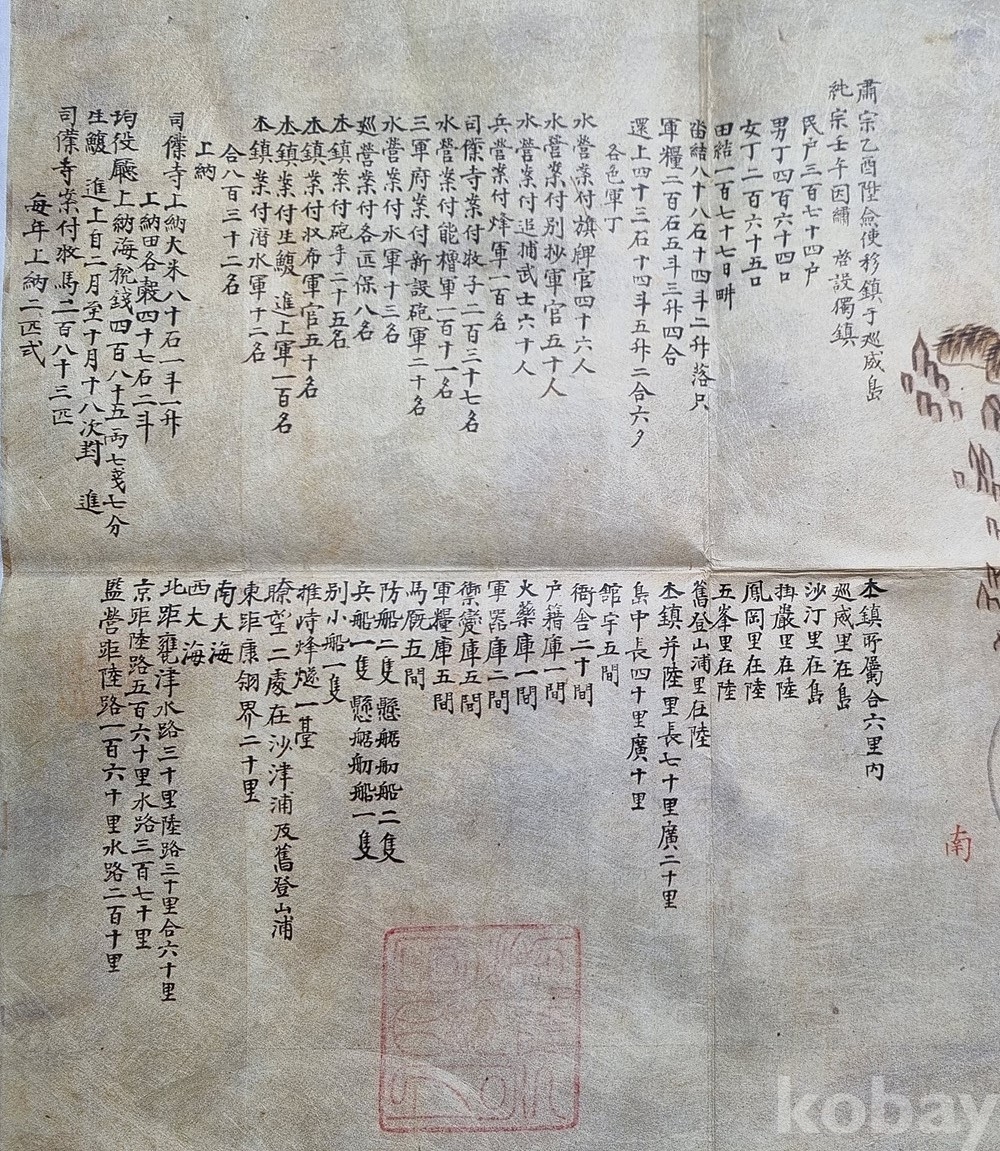 肅宗乙酉陞僉使移鎮于巡威島
純宗壬午因繡 啓設獨鎮
民戶三百七十四戶
男丁四百六十四口
女丁二百六十五口
田結一百七十七日畊
畓結八十八石十四斗二升落只
軍糧二百石五斗三升四合
還上四十三石十四斗五升二合六夕
各色軍丁
水營案付旗牌官四十六人
水營案付別抄軍官五十人
水營案付追捕武士六十人
兵營案付烽軍一百名
司僕寺案付牧子二百三十七名
水營案付能櫓軍一百十一名
三軍府案付新設砲軍二十名
水營案付水軍十三名
巡營案付各匠保八名
本鎮案付砲手二十五名
本鎮案付收布軍官五十名
本鎮案付生鰒 進上軍一百名
本鎮案付潛水軍十二名
合八百三十二名
上納
司僕寺上納大米八十石一斗一升
上納田各穀四十七石二斗
均役廳上納海稅錢四百八十五両七戔七分
生鰒 進上自二月至十月十八次封 進
司僕寺案付牧馬二百八十三匹
每年上納二匹弐
本鎮所屬合六里內
巡威里在島
沙汀里在島
掛巖里在陸
鳳岡里在陸
五峯里在陸
舊登山浦里在陸
本鎮并陸里長七十里廣二十里
島中長四十里廣十里
館宇五間
衙舍二十間
戶籍庫一間
火藥庫一間
軍器庫二間
禦變庫五間
軍糧庫五間
馬厩五間
防船二隻 懸䑸舠船二隻
兵船一隻 懸䑸舠船一隻
別小船一隻
推峙烽燧一臺
瞭望二處在沙津浦及舊登山浦
東距康翎界二十里
南大海
西大海
北距甕津水路三十里陸路三十里合六十里
京距陸路五百六十里水路三百七十里
監營距陸路一百六十里水路二百十里
南
kobay